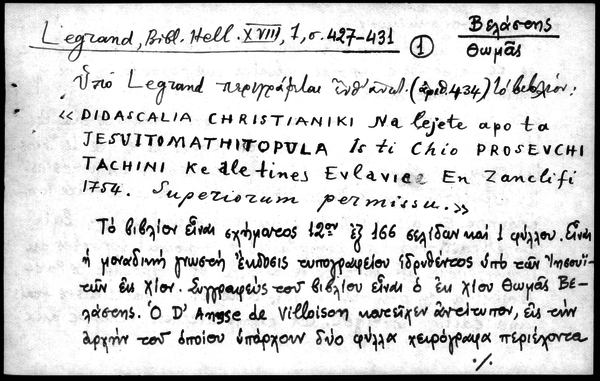 Legrand, Bibl. Hell. XVIII, 1, σ. 427-431 ① Βελάστης Θωμᾶς
Ὑπό Legrand περιγράφεται (ἀριθ. 434) τό βιβλίον:
«DIDASCALIA CHRISTIANIKI Na lejete apo ta
JESUITOMATHITOPULA Is ti Chio PROSEVCHI
TACHINI Ke ale tines Evlavies En Zanclifi
1754. Superiorum permissu.»
Τό βιβλίον εἶναι σχήματος 12ου ἐξ 166 σελίδων καί 1 φύλλου. Εἶναι
ἡ μοναδική γνωστή ἔκδοσις τυπογραφείου ἱδρυθέντος ὑπό τῶν Ἰησουϊ-
τῶν εἰς Χίον. Συγγραφεύς τοῦ βιβλίου εἶναι ὁ ἐκ Χίου Θωμᾶς Βε-
λάστης. Ὁ D' Ansse de Villoison κατεῖχεν ἀντίτυπον, εἰς τήν
ἀρχήν τοῦ ὁποίου ὑπάρχουν δύο φύλλα χειρόγραφα περιέχοντα
./.